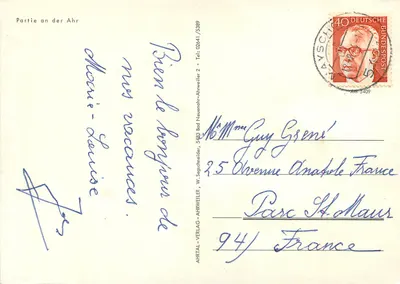 Partie an der Ahr
Bien le bonjour de
nos vacances.
Marie-Louise
AHRTAL-VERLAG - AHRWEILER, W. Segschneider, 5483 Bad Neuenahr-Ahrweiler 2 · Tel. 02641/5389
40 DEUTSCHE
BUNDESPOST
Mr Mme Guy Grené
25 Avenue Anatole France
Parc St. Maur
94/ France